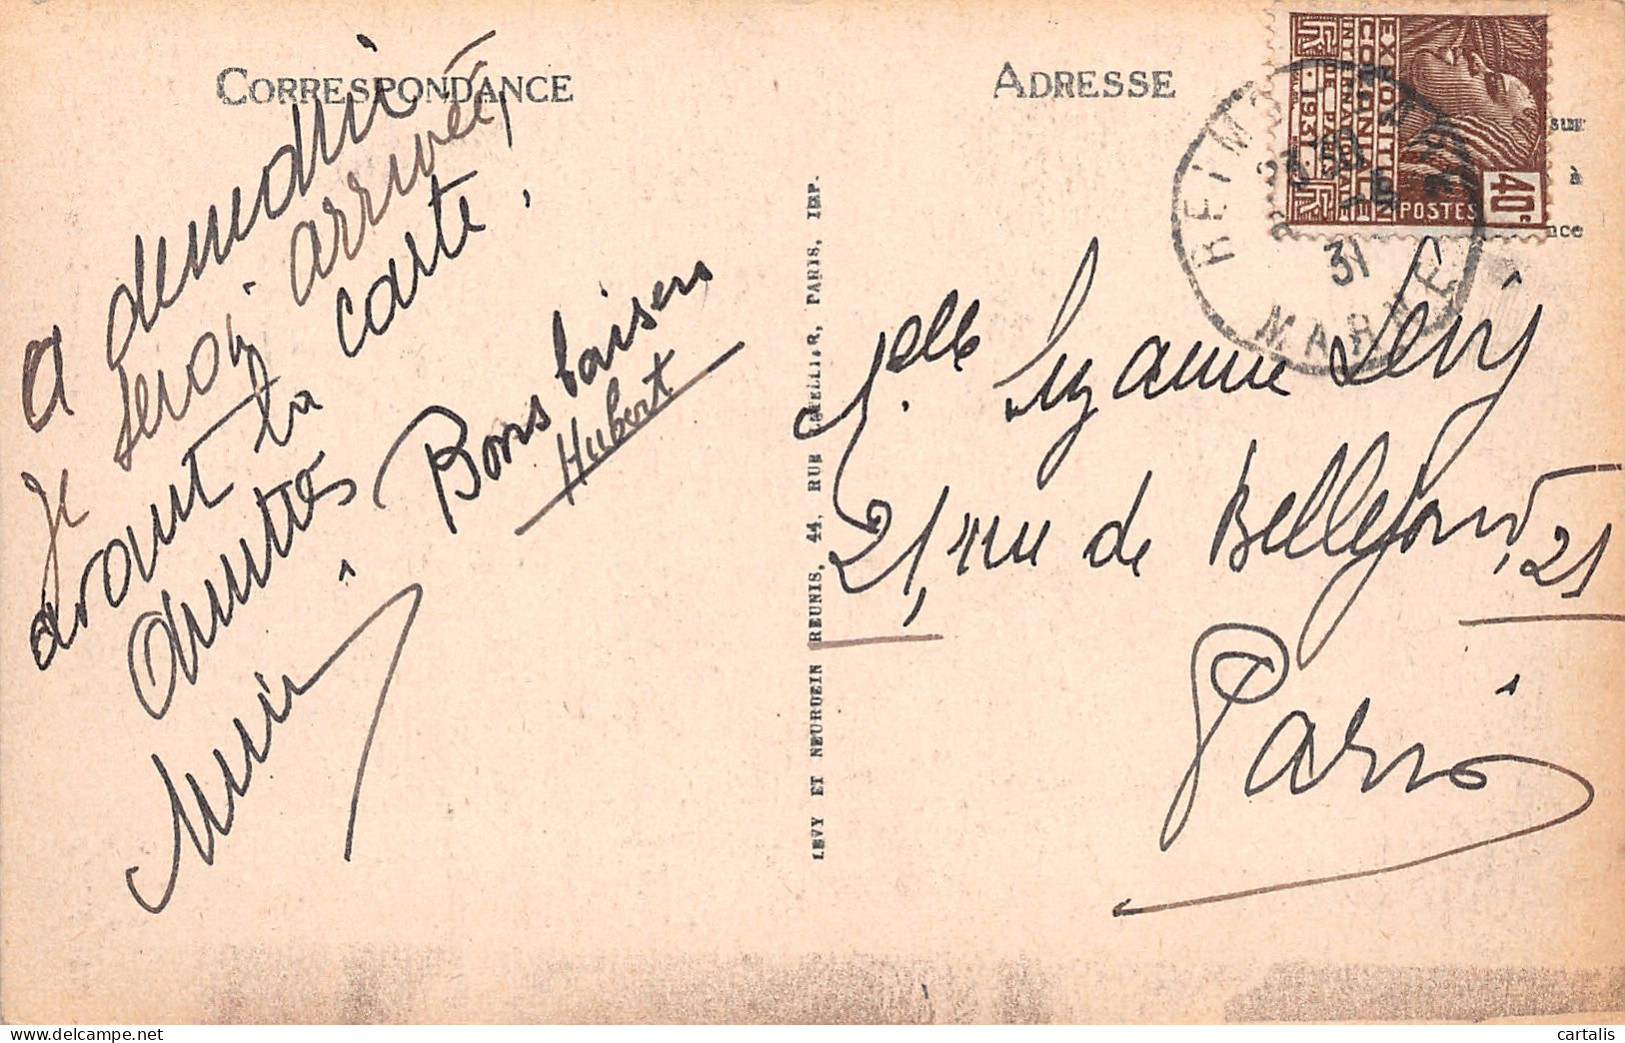 CORRESPONDANCE
A demain
je serai arrivée,
avant la carte !
Amitiés
Bons baisers
Hubert
LEVY ET NEURDEIN REUNIS, 44, RUE LETELLIER, PARIS, IMP.
ADRESSE
EXPOSITION
COLONIALE
INTERNATIONALE
DE PARIS
1931
POSTES
40c
REIMS
MARNE
31
sur
à
nce
Melle Suzanne Lévy
21, rue de Bellefond, 21
Paris
cartalis